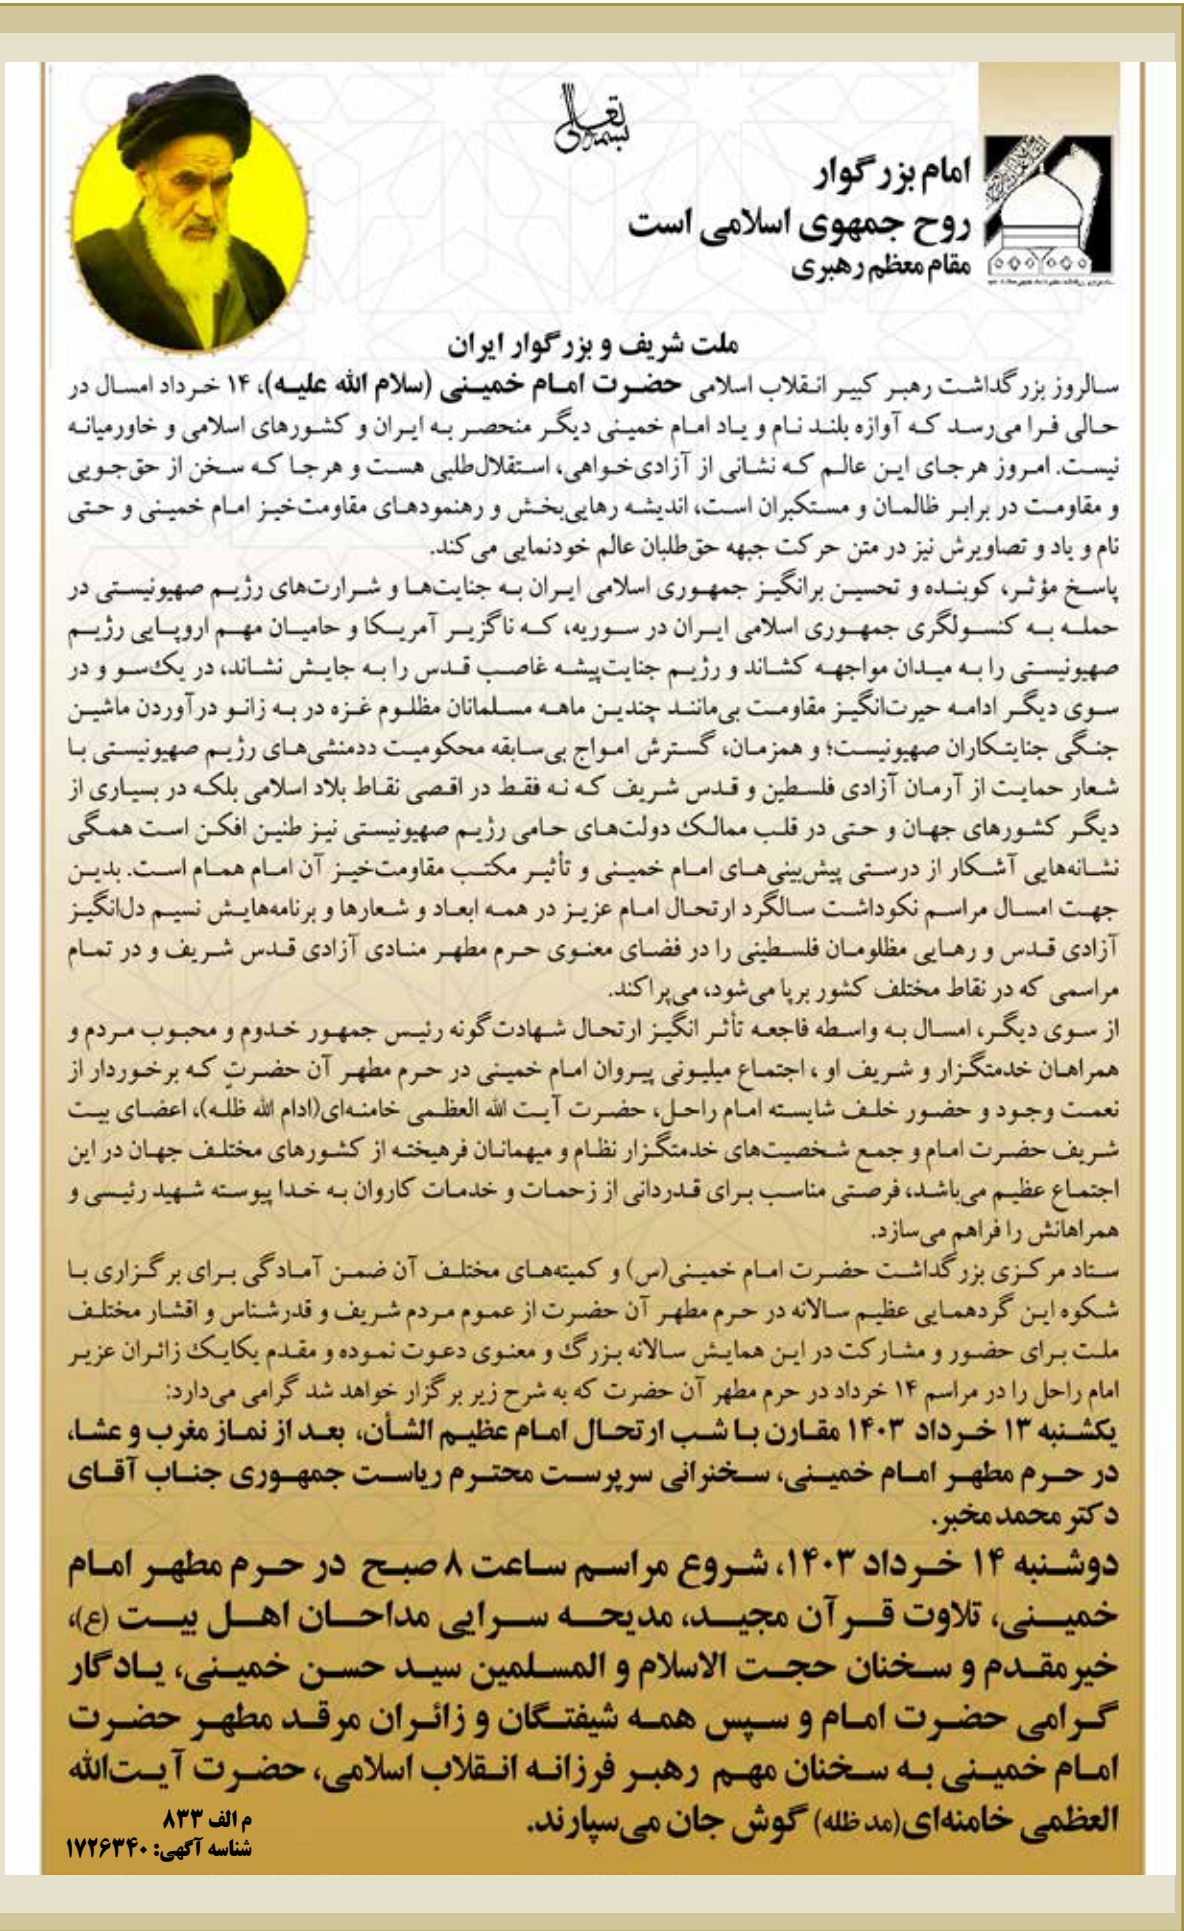 بسمه تعالی
امام بزرگوار
روح جمهوی اسلامی است
مقام معظم رهبری
ملت شریف و بزرگوار ایران
سالروز بزرگداشت رهبر کبیر انقلاب اسلامی حضرت امام خمینی (سلام الله علیه)، ۱۴ خرداد امسال در
حالی فرا می‌رسد که آوازه بلند نام و یاد امام خمینی دیگر منحصر به ایران و کشورهای اسلامی و خاورمیانه
نیست. امروز هرجای این عالم که نشانی از آزادی‌خواهی، استقلال‌طلبی هست و هرجا که سخن از حق‌جویی
و مقاومت در برابر ظالمان و مستکبران است، اندیشه رهایی‌بخش و رهنمودهای مقاومت‌خیز امام خمینی و حتی
نام و یاد و تصاویرش نیز در متن حرکت جبهه حق‌طلبان عالم خودنمایی می‌کند.
پاسخ مؤثر، کوبنده و تحسین برانگیز جمهوری اسلامی ایران به جنایت‌ها و شرارت‌های رژیم صهیونیستی در
حمله به کنسولگری جمهوری اسلامی ایران در سوریه، که ناگزیر آمریکا و حامیان مهم اروپایی رژیم
صهیونیستی را به میدان مواجهه کشاند و رژیم جنایت‌پیشه غاصب قدس را به جایش نشاند، در یک‌سو و در
سوی دیگر ادامه حیرت‌انگیز مقاومت بی‌مانند چندین ماهه مسلمانان مظلوم غزه در به زانو درآوردن ماشین
جنگی جنایتکاران صهیونیست؛ و همزمان، گسترش امواج بی‌سابقه محکومیت ددمنشی‌های رژیم صهیونیستی با
شعار حمایت از آرمان آزادی فلسطین و قدس شریف که نه فقط در اقصی نقاط بلاد اسلامی بلکه در بسیاری از
دیگر کشورهای جهان و حتی در قلب ممالک دولت‌های حامی رژیم صهیونیستی نیز طنین افکن است همگی
نشانه‌هایی آشکار از درستی پیش‌بینی‌های امام خمینی و تأثیر مکتب مقاومت‌خیز آن امام همام است. بدین
جهت امسال مراسم نکوداشت سالگرد ارتحال امام عزیز در همه ابعاد و شعارها و برنامه‌هایش نسیم دل‌انگیز
آزادی قدس و رهایی مظلومان فلسطینی را در فضای معنوی حرم مطهر منادی آزادی قدس شریف و در تمام
مراسمی که در نقاط مختلف کشور برپا می‌شود، می‌پراکند.
از سوی دیگر، امسال به واسطه فاجعه تأثر انگیز ارتحال شهادت‌گونه رئیس جمهور خدوم و محبوب مردم و
همراهان خدمتگزار و شریف او ، اجتماع میلیونی پیروان امام خمینی در حرم مطهر آن حضرتِ که برخوردار از
نعمت وجود و حضور خلف شایسته امام راحل، حضرت آیت الله العظمی خامنه‌ای(ادام الله ظله)، اعضای بیت
شریف حضرت امام و جمع شخصیت‌های خدمتگزار نظام و میهمانان فرهیخته از کشورهای مختلف جهان در این
اجتماع عظیم می‌باشد، فرصتی مناسب برای قدردانی از زحمات و خدمات کاروان به خدا پیوسته شهید رئیسی و
همراهانش را فراهم می‌سازد.
ستاد مرکزی بزرگداشت حضرت امام خمینی(س) و کمیته‌های مختلف آن ضمن آمادگی برای برگزاری با
شکوه این گردهمایی عظیم سالانه در حرم مطهر آن حضرت از عموم مردم شریف و قدرشناس و اقشار مختلف
ملت برای حضور و مشارکت در این همایش سالانه بزرگ و معنوی دعوت نموده و مقدم یکایک زائران عزیر
امام راحل را در مراسم ۱۴ خرداد در حرم مطهر آن حضرت که به شرح زیر برگزار خواهد شد گرامی می‌دارد:
یکشنبه ۱۳ خرداد ۱۴۰۳ مقارن با شب ارتحال امام عظیم الشأن، بعد از نماز مغرب و عشا،
در حرم مطهر امام خمینی، سخنرانی سرپرست محترم ریاست جمهوری جناب آقای
دکتر محمد مخبر.
دوشنبه ۱۴ خرداد ۱۴۰۳، شروع مراسم ساعت ۸ صبح در حرم مطهر امام
خمینی، تلاوت قرآن مجید، مدیحه سرایی مداحان اهل بیت (ع)،
خیرمقدم و سخنان حجت الاسلام و المسلمین سید حسن خمینی، یادگار
گرامی حضرت امام و سپس همه شیفتگان و زائران مرقد مطهر حضرت
امام خمینی به سخنان مهم رهبر فرزانه انقلاب اسلامی، حضرت آیت‌الله
العظمی خامنه‌ای(مد ظله) گوش جان می‌سپارند.
م الف ۸۳۳
شناسه آگهی: ۱۷۲۶۳۴۰